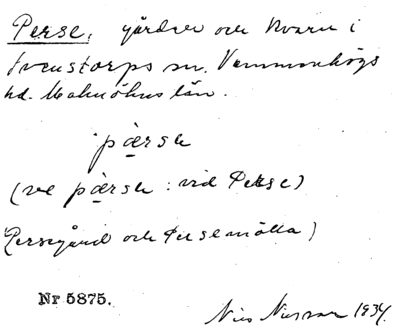 Perse, gårdar och kvarn i
Svenstorps sn. Vemmenhögs
hd. Malmöhus län.
pärse
(ve pärse : vid Perse)
Persegård och Persemölla)
Nr 5875.
Nils Nilsson 1934.